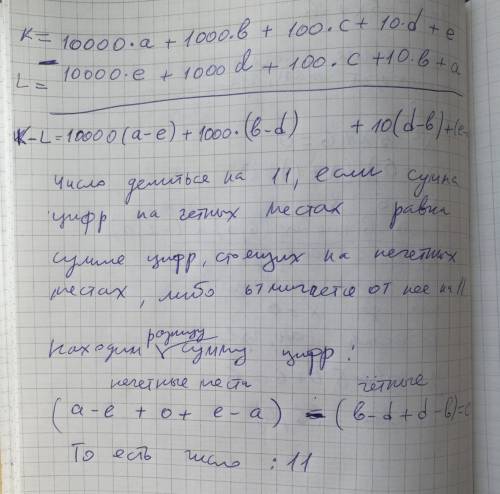 K = 10000·a + 1000·в + 100·c + 10·d + e
L = 10000·e + 1000d + 100·c + 10·в + a
K-L=10000(a-e)+1000·(в-d) +10(d-в)+(e-
Число делиться на 11, если сумма
цифр на четных местах равна
сумме цифр, стоящих на нечетных
местах, либо отличается от нее на 11
разницу
Находим сумму цифр:
нечетные места чётные
(a-e + 0 + e-a) - (в-d+d-в)=0
То есть число : 11